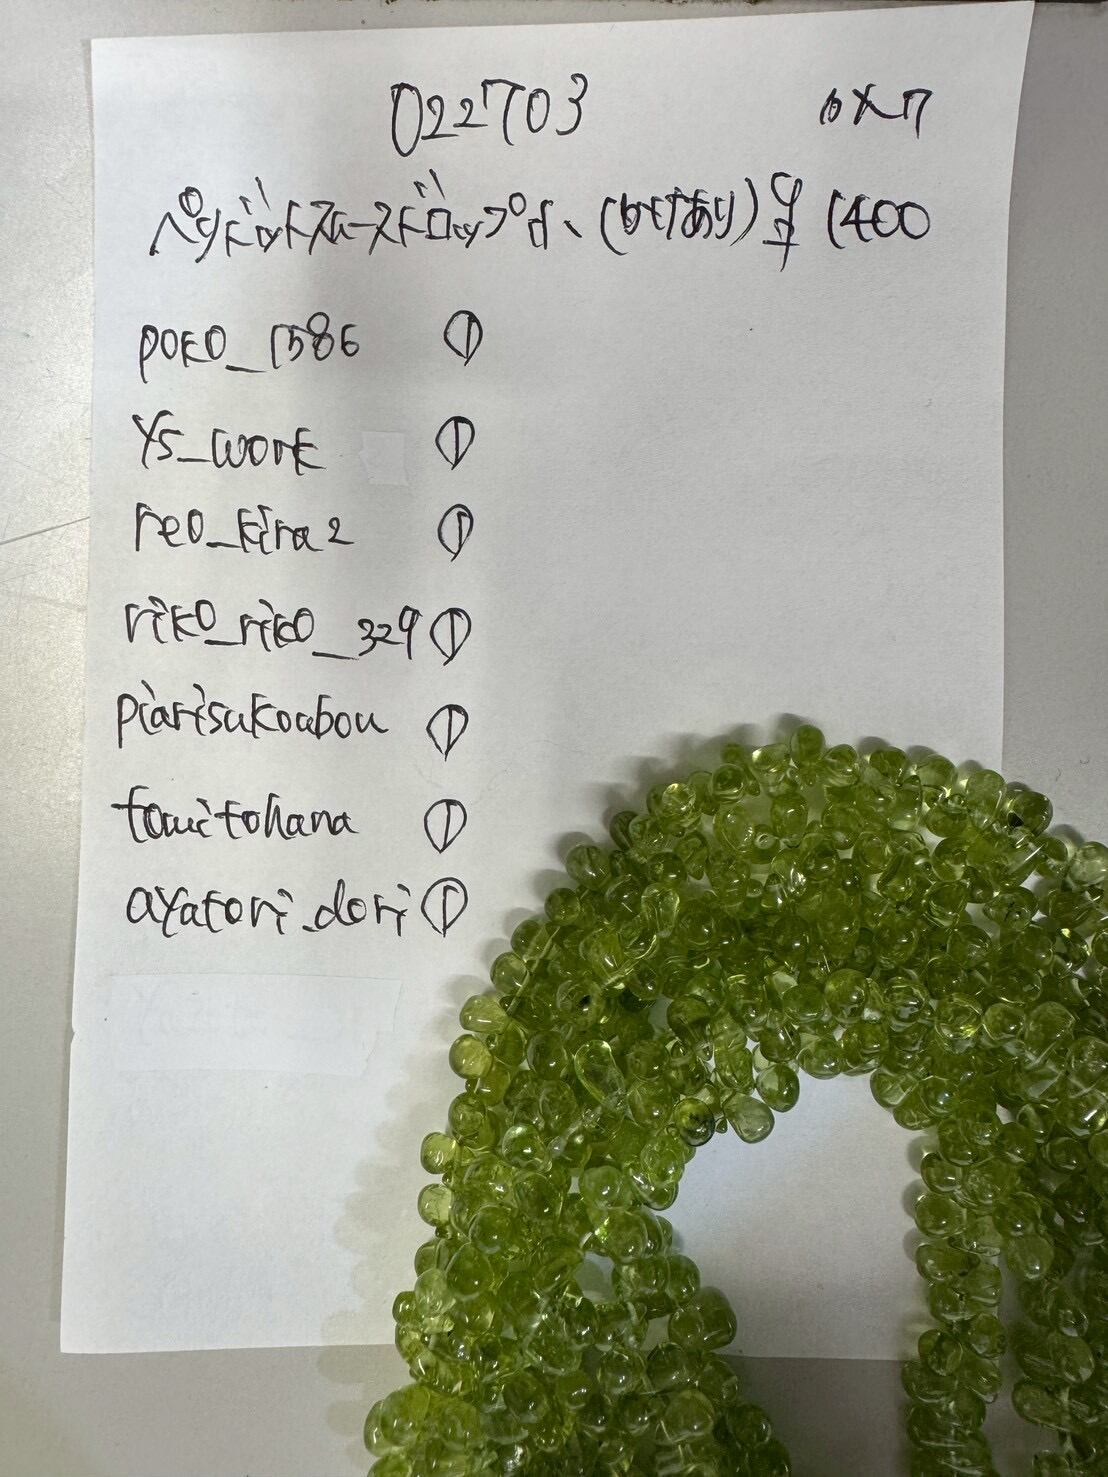 022703
ペリドットスムースドロップ (かけあり) 半 1400
poko_1586 ①
ys_work ①
reo_kira2 ①
riko_riko_329 ①
piarisukoubou ①
tomitohana ①
ayatori_dori ①